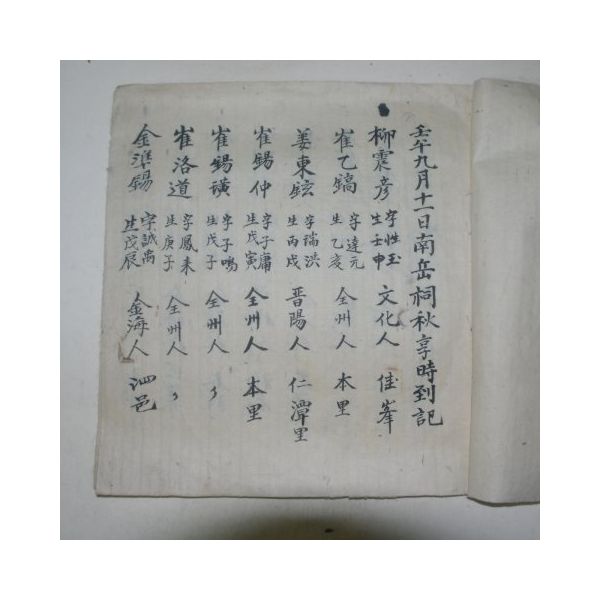 壬午九月十一日南岳祠秋享時到記
柳霖彦 字性玉 生壬申 文化人 佳峯
崔乙鎬 字達元 生乙亥 仝州人 本里
姜東鉉 字瑞洪 生丙戌 晋陽人 仁潭里
崔錫仲 字子庸 生戊寅 全州人 本里
崔錫璜 字子鳴 生戊子 仝州人 〃
崔洛道 字鳳来 生庚子 仝州人 〃
金準錫 字誠禹 生戊辰 金海人 泗邑